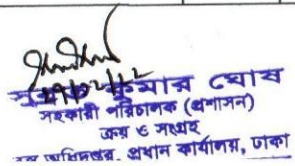 কুমার ঘোষ
সহকারী পরিচালক (প্রশাসন)
ক্রয় ও সংগ্রহ
অধিদপ্তর, প্রধান কার্যালয়, ঢাকা